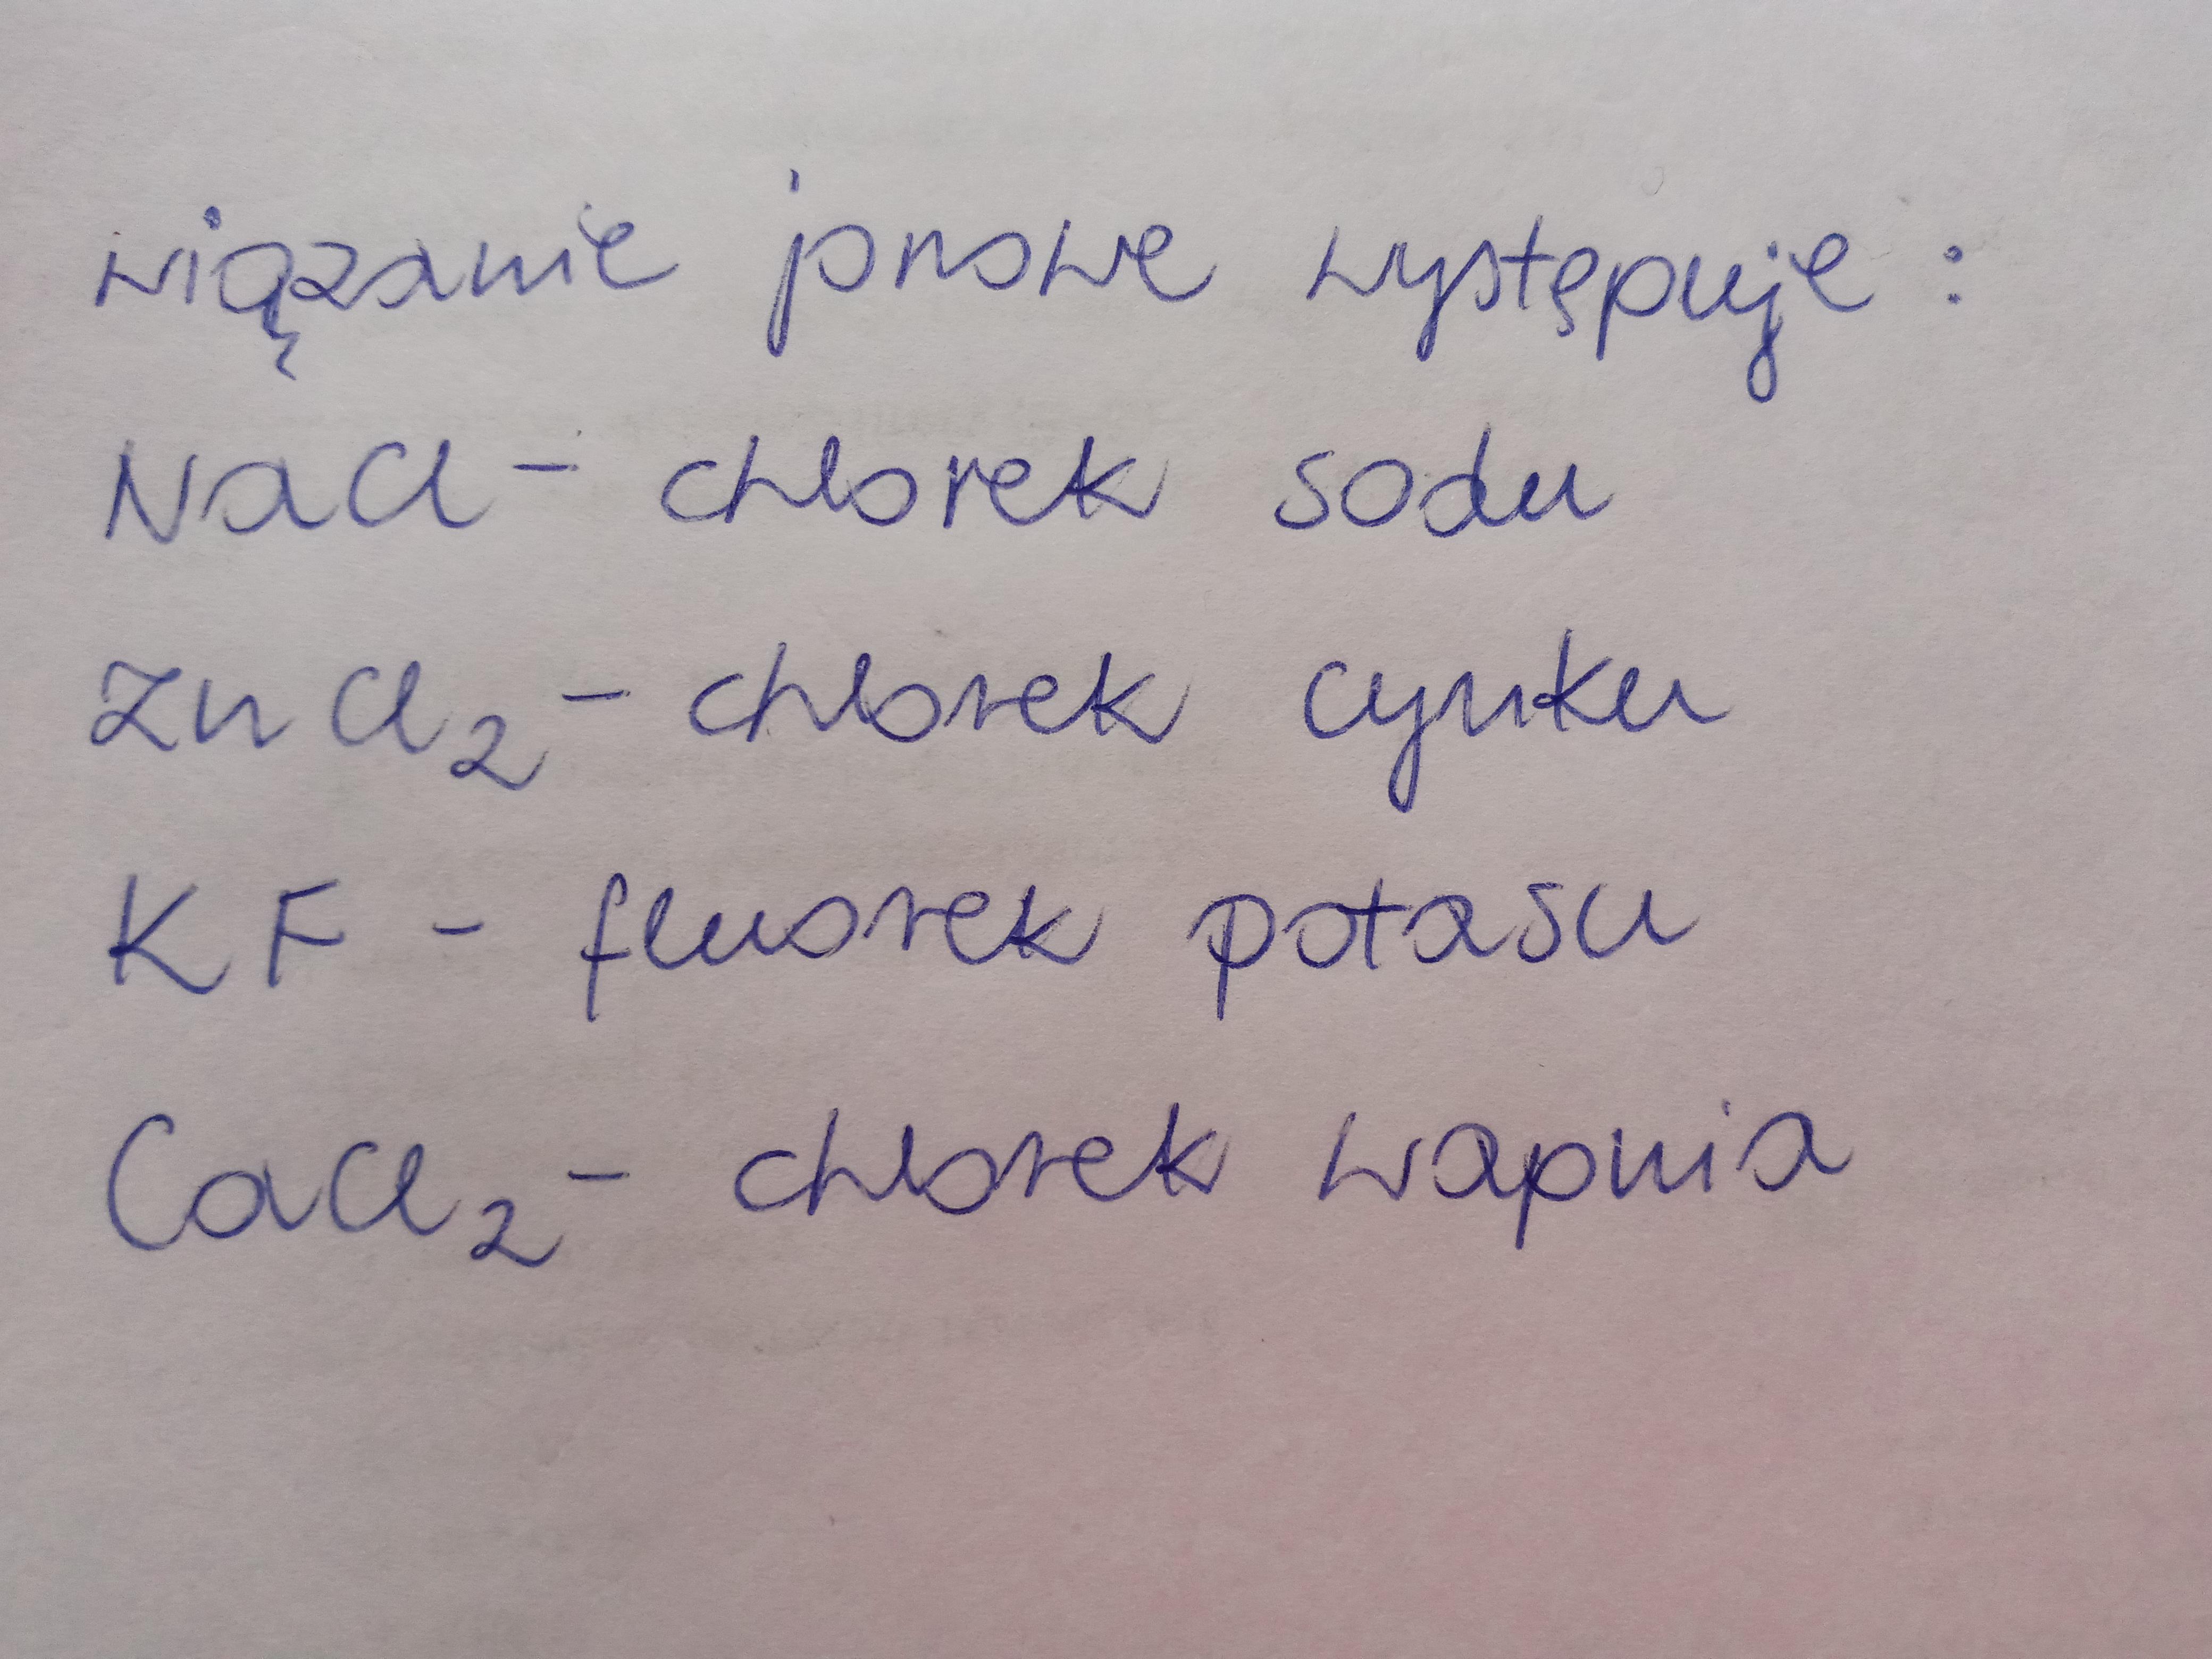 wiązanie jonowe występuje:
NaCl - chlorek sodu
ZnCl₂ - chlorek cynku
KF - fluorek potasu
CaCl₂ - chlorek wapnia